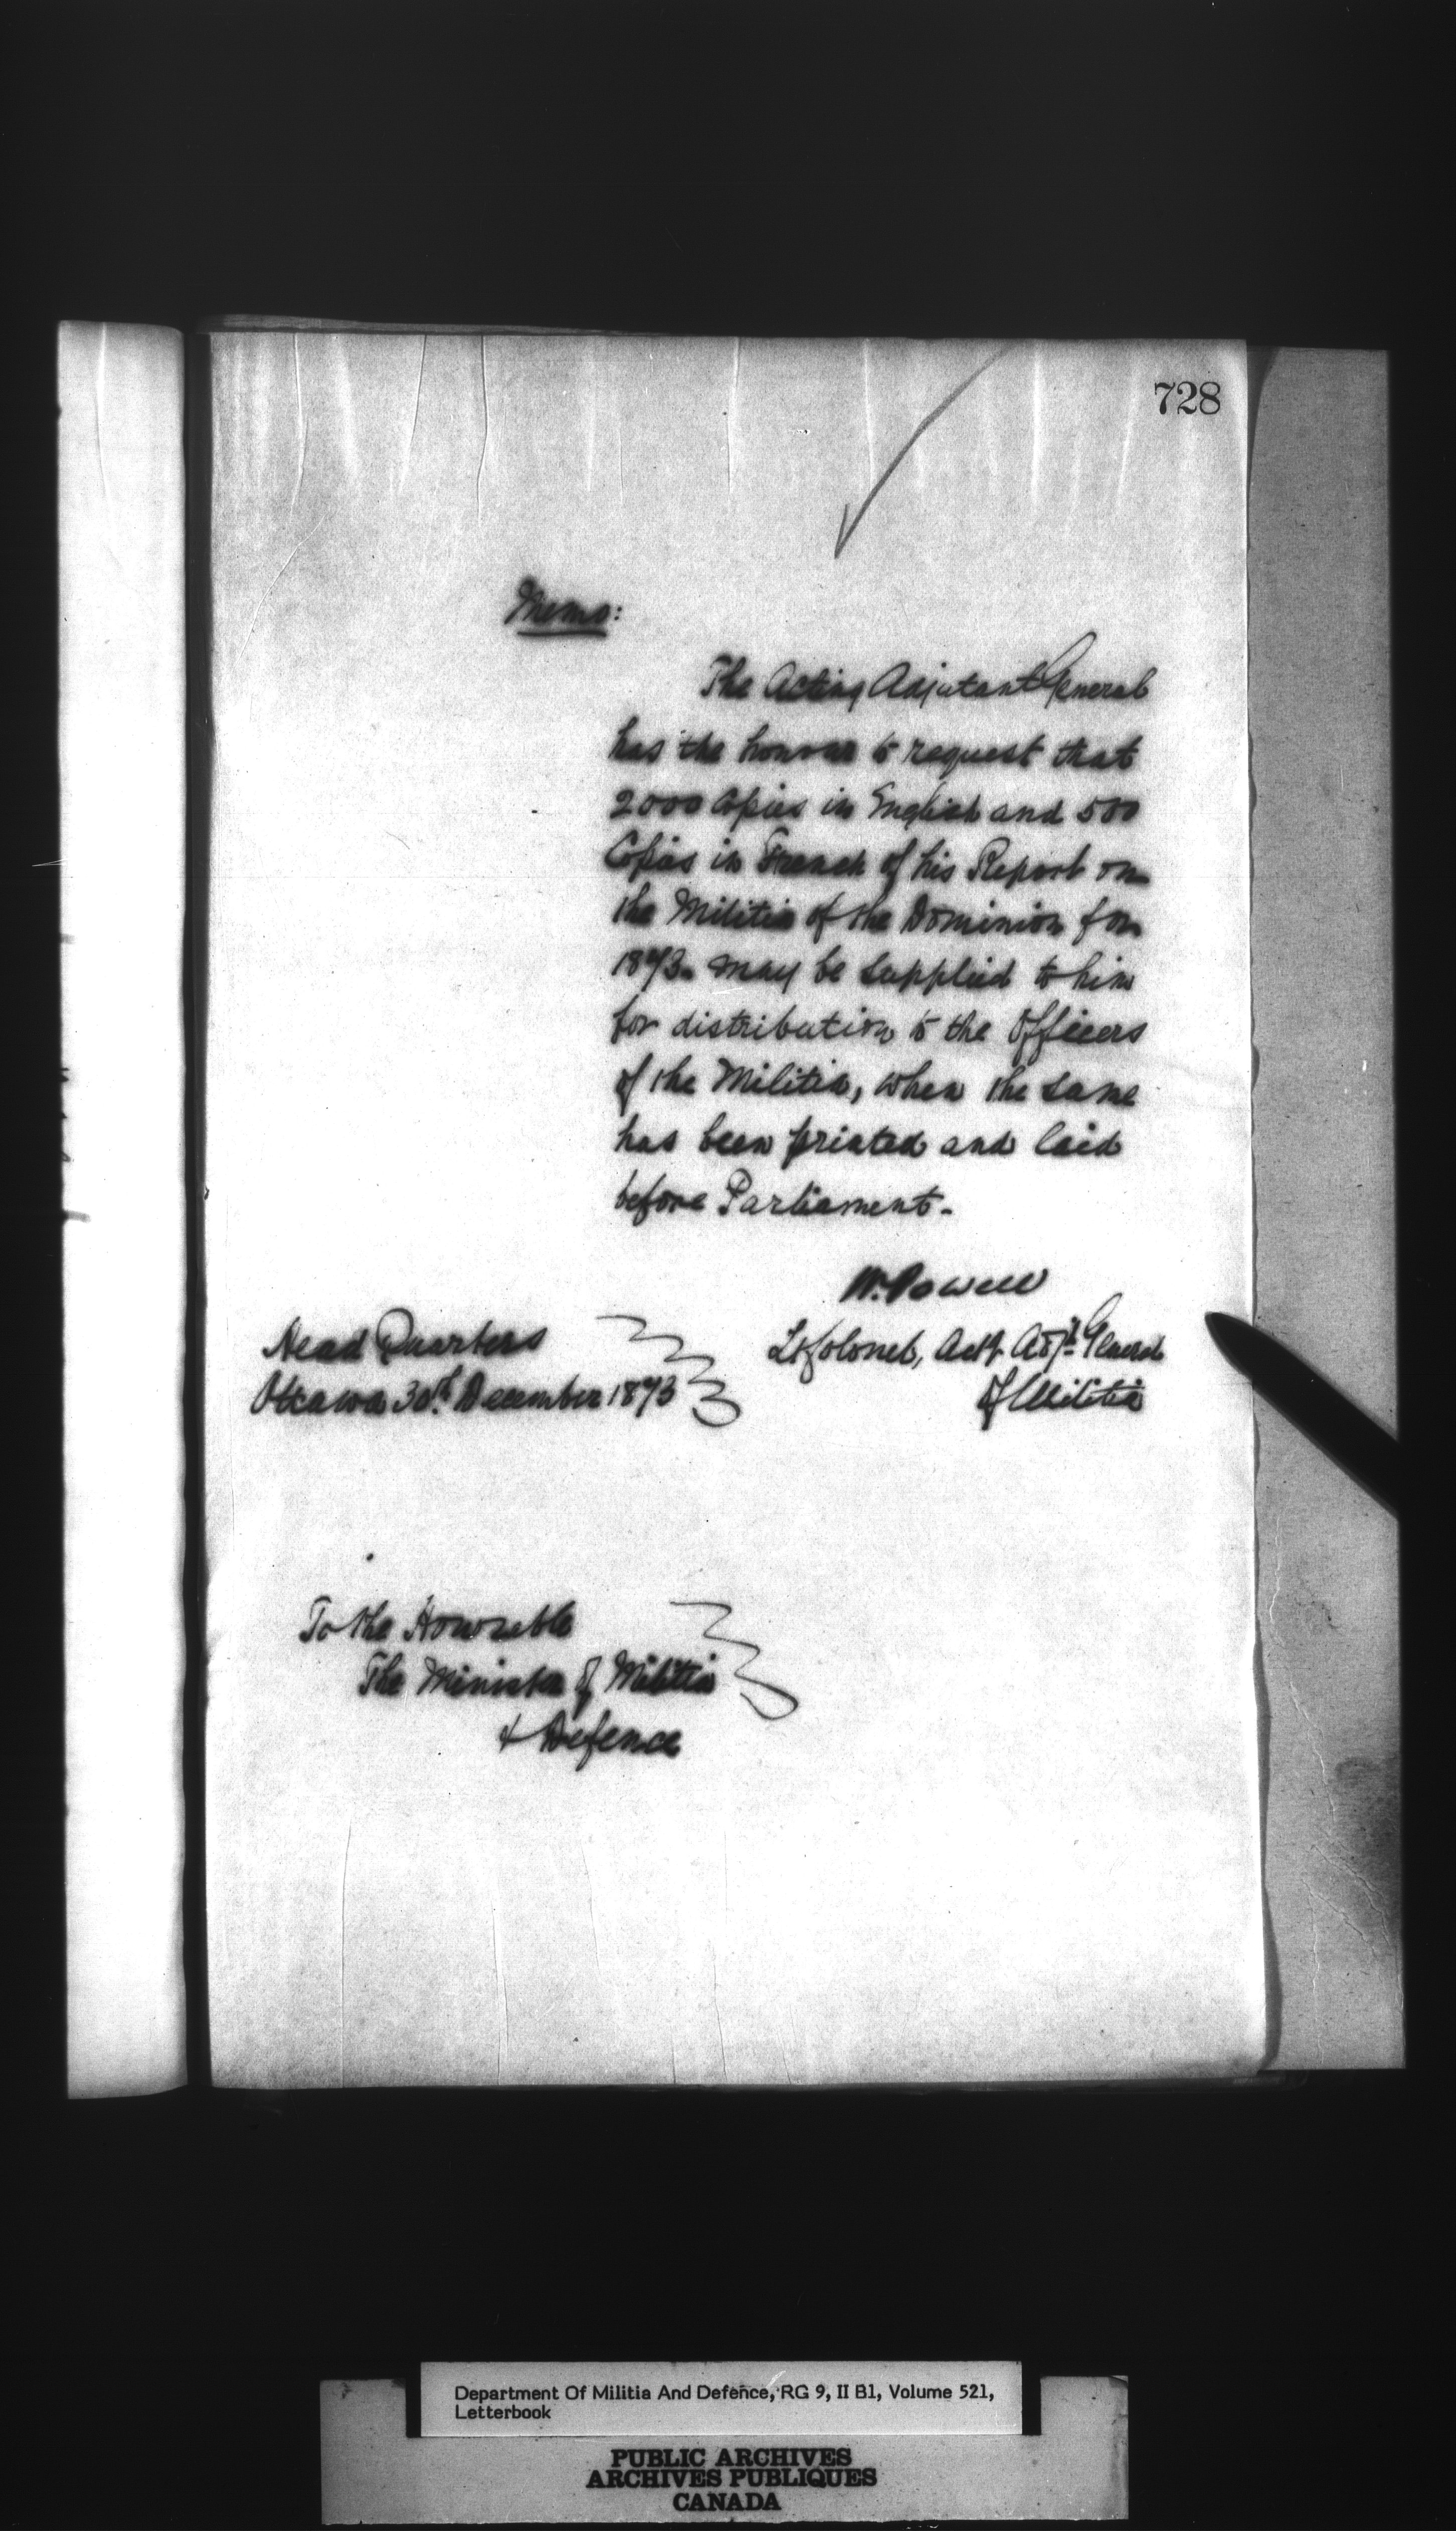 728
Memo:
The Acting Adjutant General
has the honour to request that
2000 Copies in English and 500
Copies in French of his Report on
the Militia of the Dominion for
1873. may be supplied to him
for distribution to the Officers
of the Militia, when the same
has been printed and laid
before Parliament.
W. Powell
Lt Colonel, Actg Adjt. General
of Militia
Head Quarters
Ottawa 30th. December 1873
To the Honorable
The Minister of Militia
& Defence
Department Of Militia And Defence, RG 9, II B1, Volume 521,
Letterbook
PUBLIC ARCHIVES
ARCHIVES PUBLIQUES
CANADA